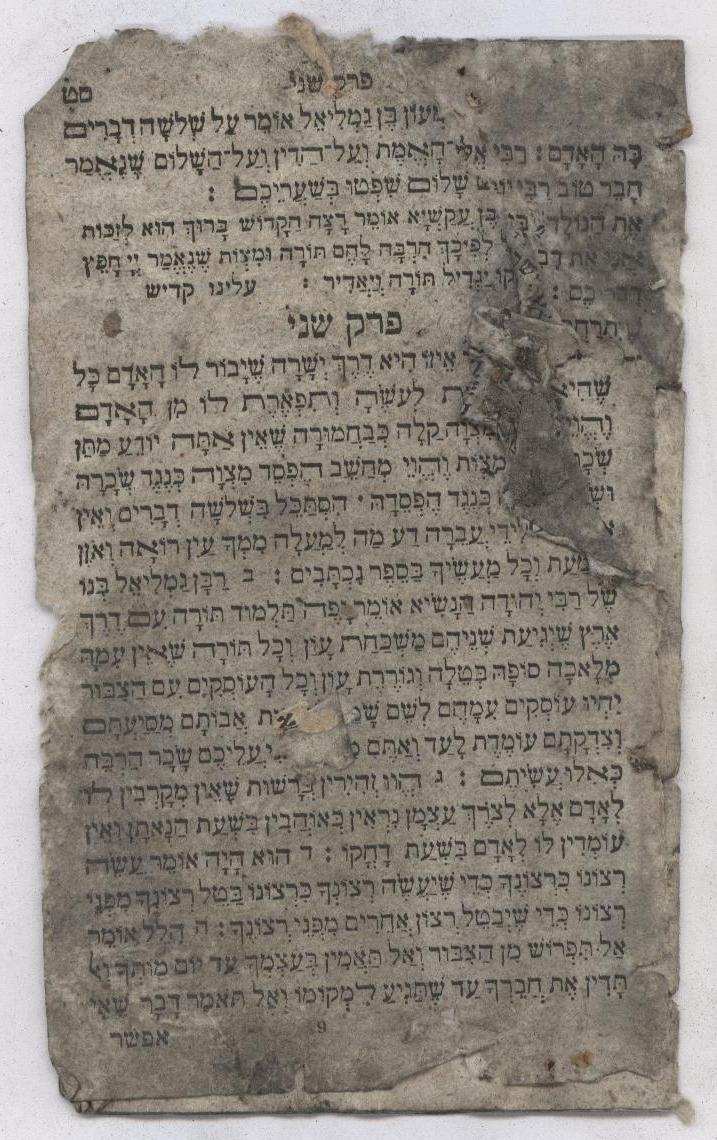 פרק שני
סט
שִׁמְעוֹן בֶּן גַּמְלִיאֵל אוֹמֵר עַל שְׁלֹשָׁה דְבָרִים
הָאֱמֶת וְעַל־הַדִּין וְעַל־הַשָּׁלוֹם שֶׁנֶּאֱמַר
שָׁלוֹם שִׁפְטוּ בְּשַׁעֲרֵיכֶם :
בֶּן עֲקַשְׁיָא אוֹמֵר רָצָה הַקָּדוֹשׁ בָּרוּךְ הוּא לְזַכּוֹת
לְפִיכָךְ הִרְבָּה לָהֶם תּוֹרָה וּמִצְוֹת שֶׁנֶּאֱמַר יְיָ חָפֵץ
יַגְדִּיל תּוֹרָה וְיַאְדִּיר : עלינו קדיש
פרק שני
אֵיזוֹ הִיא דֶּרֶךְ יְשָׁרָה שֶׁיָּבוֹר לוֹ הָאָדָם כָּל
שֶׁהִיא לְעֹשֶׂהָ וְתִפְאֶרֶת לוֹ מִן הָאָדָם
קַלָּה כְּבַחֲמוּרָה שֶׁאֵין אַתָּה יוֹדֵעַ מַתַּן
מִצְוֹת וֶהֱוֵי מְחַשֵּׁב הֶפְסֵד מִצְוָה כְּנֶגֶד שְׂכָרָהּ
כְּנֶגֶד הֶפְסֵדָהּ • הִסְתַּכֵּל בִּשְׁלֹשָׁה דְבָרִים וְאֵין
לִידֵי עֲבֵרָה דַּע מַה לְּמַעְלָה מִמְּךָ עַיִן רוֹאָה וְאֹזֶן
וְכָל מַעֲשֶׂיךָ בַּסֵּפֶר נִכְתָּבִים : ב רַבָּן גַּמְלִיאֵל בְּנוֹ
שֶׁל רַבִּי יְהוּדָה הַנָּשִׂיא אוֹמֵר יָפֶה תַּלְמוּד תּוֹרָה עִם דֶּרֶךְ
אֶרֶץ שֶׁיְּגִיעַת שְׁנֵיהֶם מַשְׁכַּחַת עָוֹן וְכָל תּוֹרָה שֶׁאֵין עִמָּהּ
מְלָאכָה סוֹפָהּ בְּטֵלָה וְגוֹרֶרֶת עָוֹן וְכָל הָעוֹסְקִים עִם הַצִּבּוּר
יִהְיוּ עוֹסְקִים עִמָּהֶם לְשֵׁם אֲבוֹתָם מְסִיעָתָם
וְצִדְקָתָם עוֹמֶדֶת לָעַד וְאַתֶּם עֲלֵיכֶם שָׂכָר הַרְבֵּה
כְּאִלּוּ עֲשִׂיתֶם : ג הֱווּ זְהִירִין בָּרָשׁוּת שֶׁאֵין מְקָרְבִין לוֹ
לְאָדָם אֶלָּא לְצֹרֶךְ עַצְמָן נִרְאִין כְּאוֹהֲבִין בִּשְׁעַת הֲנָאָתָן וְאֵין
עוֹמְדִין לוֹ לְאָדָם בִּשְׁעַת דָּחֳקוֹ : ד הוּא הָיָה אוֹמֵר עֲשֵׂה
רְצוֹנוֹ כִּרְצוֹנְךָ כְּדֵי שֶׁיַּעֲשֶׂה רְצוֹנְךָ כִּרְצוֹנוֹ בַּטֵּל רְצוֹנְךָ מִפְּנֵי
רְצוֹנוֹ כְּדֵי שֶׁיְּבַטֵּל רְצוֹן אֲחֵרִים מִפְּנֵי רְצוֹנֶךָ : ה הִלֵּל אוֹמֵר
אַל תִּפְרוֹשׁ מִן הַצִּבּוּר וְאַל תַּאֲמִין בְּעַצְמְךָ עַד יוֹם מוֹתְךָ וְאַל
תָּדִין אֶת חֲבֵרְךָ עַד שֶׁתַּגִּיעַ לִמְקוֹמוֹ וְאַל תֹּאמַר דָּבָר שֶׁאִי
9
אפשר